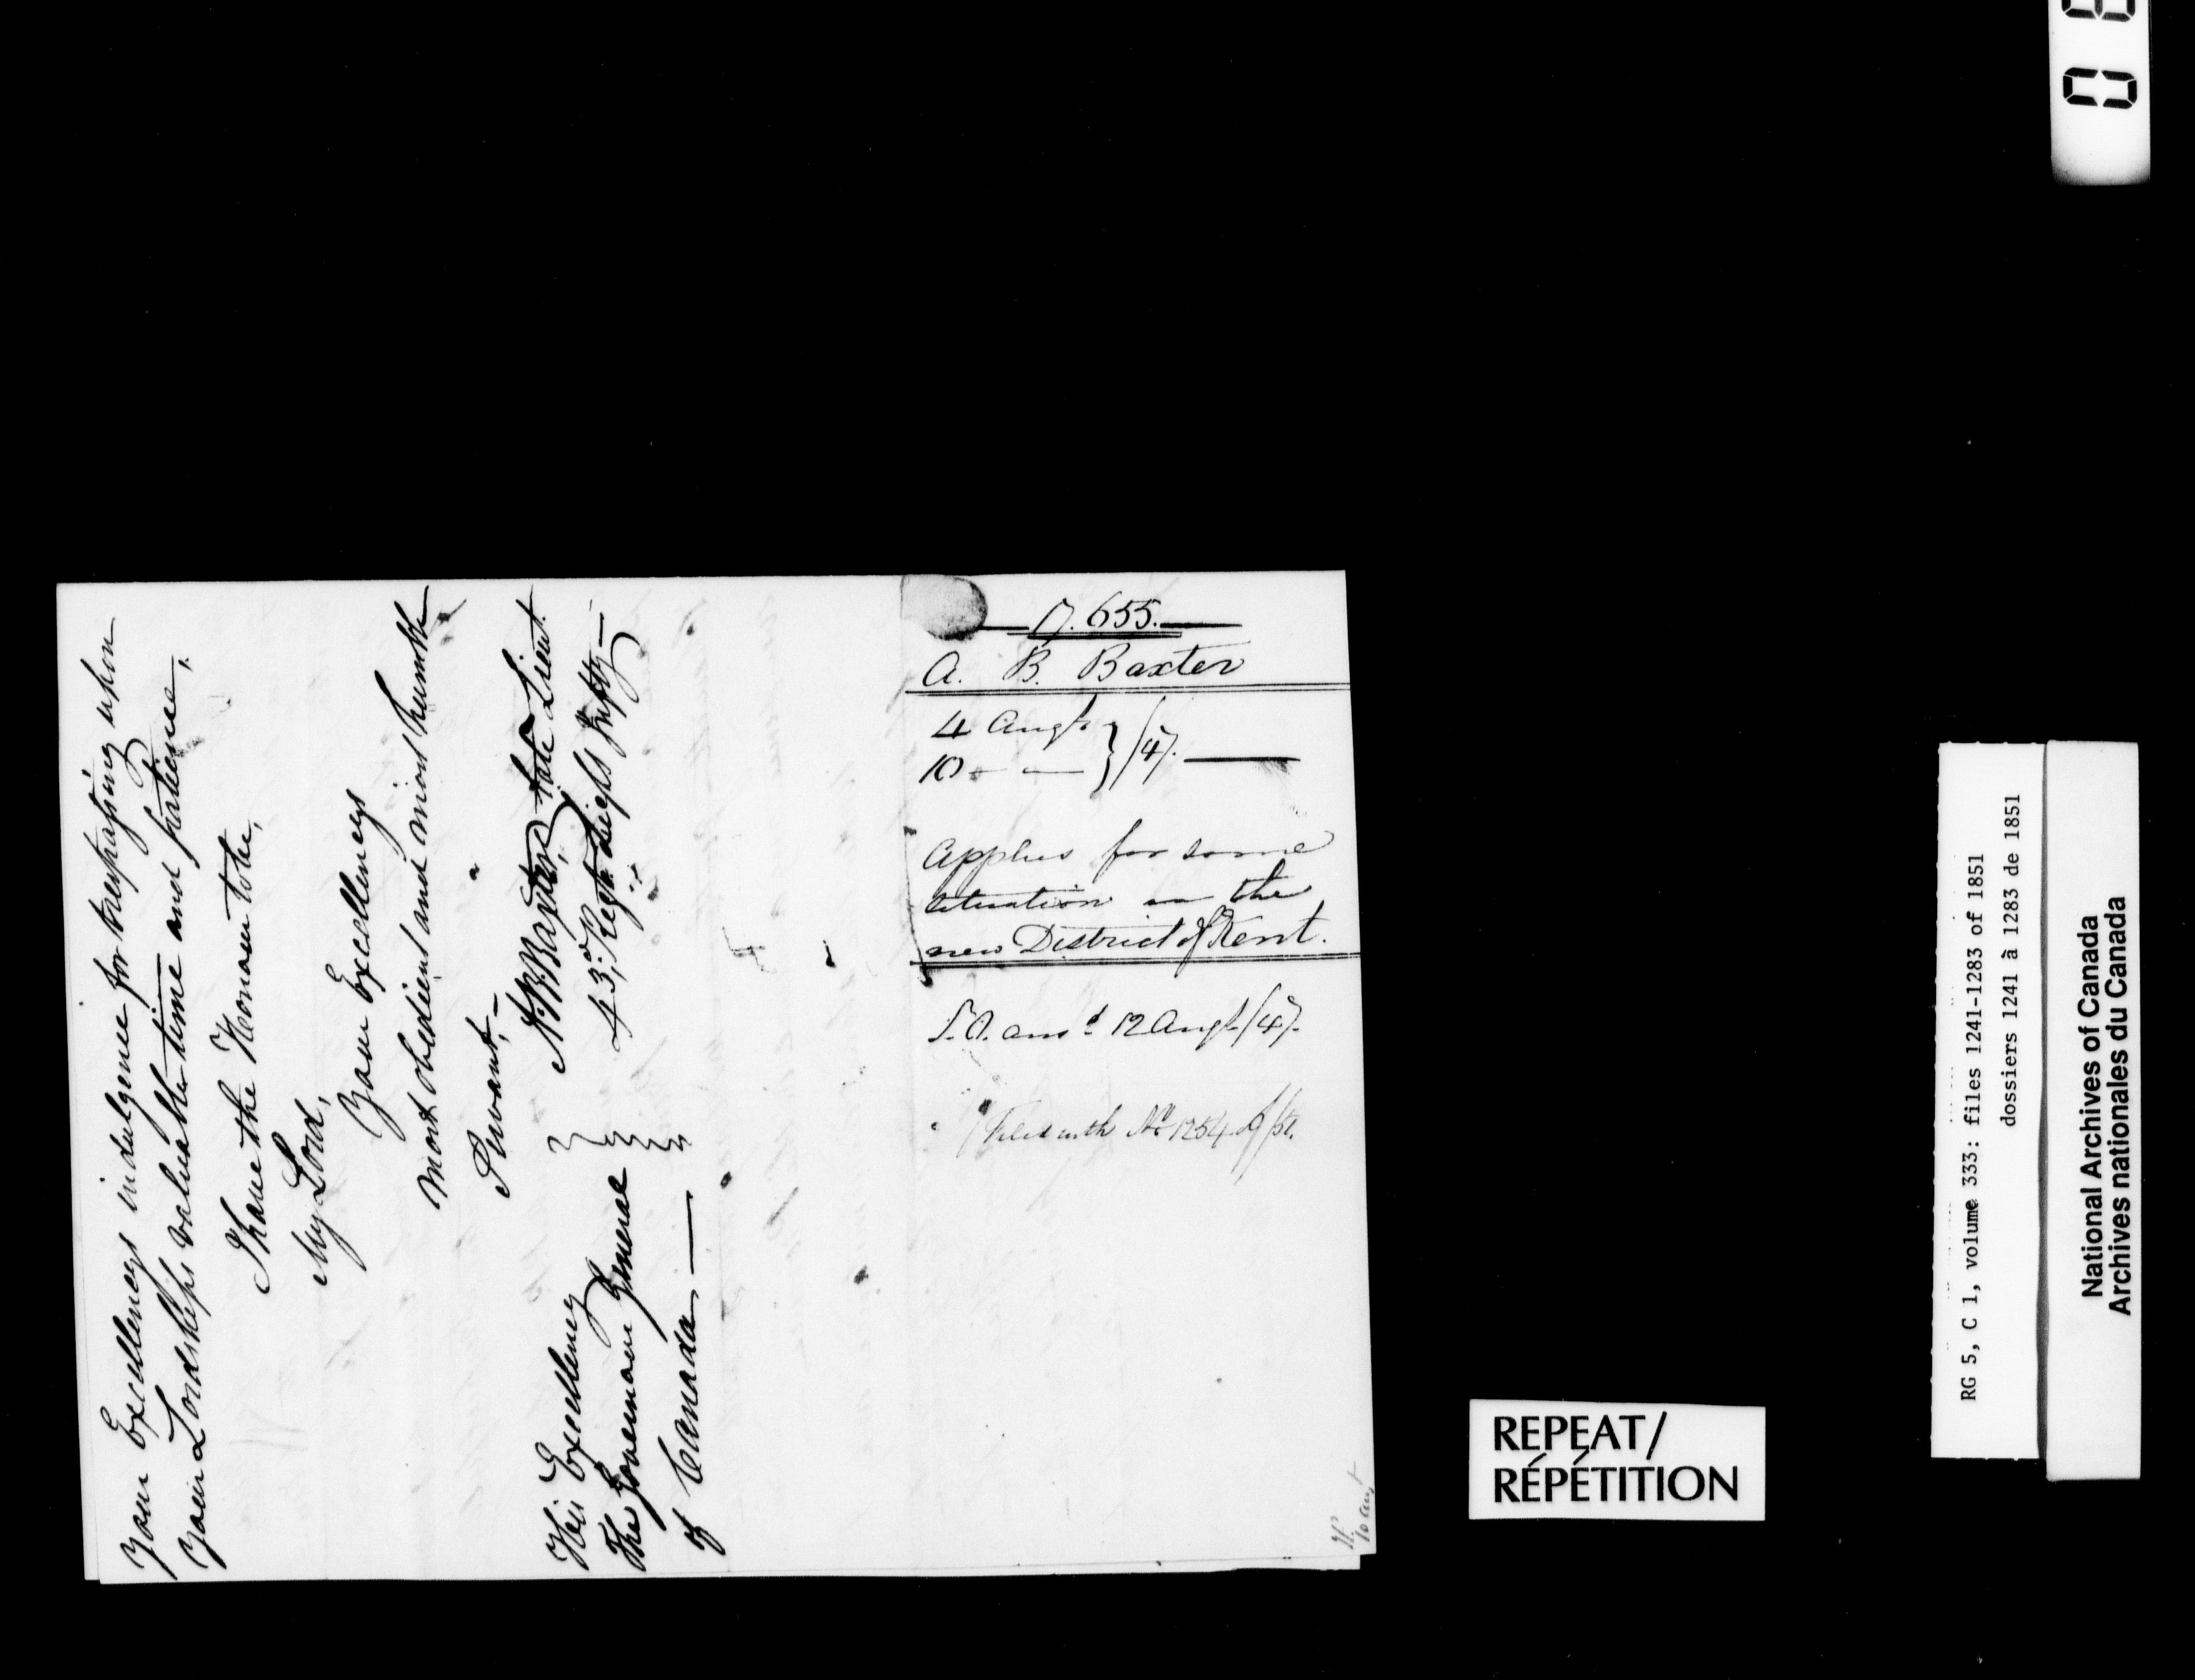 Your Excellencys indulgence for trespassing upon
Your Lordships valuable time and patience,
I have the Honour to be,
My Lord,
Your Excellencys
most obedient and most humble
Servant,
A B Baxter, late Lieut
43d Regt
His Excellency
The Governour General
of Canada
655.
A. B. Baxter
4 Augt
10 - — } /47.
Applies for some
situation in the
new District of Kent.
ansd 12 Augt /47.
Filed with No 1254 of /51.
10 augt
REPEAT/
RÉPÉTITION
RG 5, C 1, volume 333: files 1241-1283 of 1851
dossiers 1241 à 1283 de 1851
National Archives of Canada
Archives nationales du Canada
0